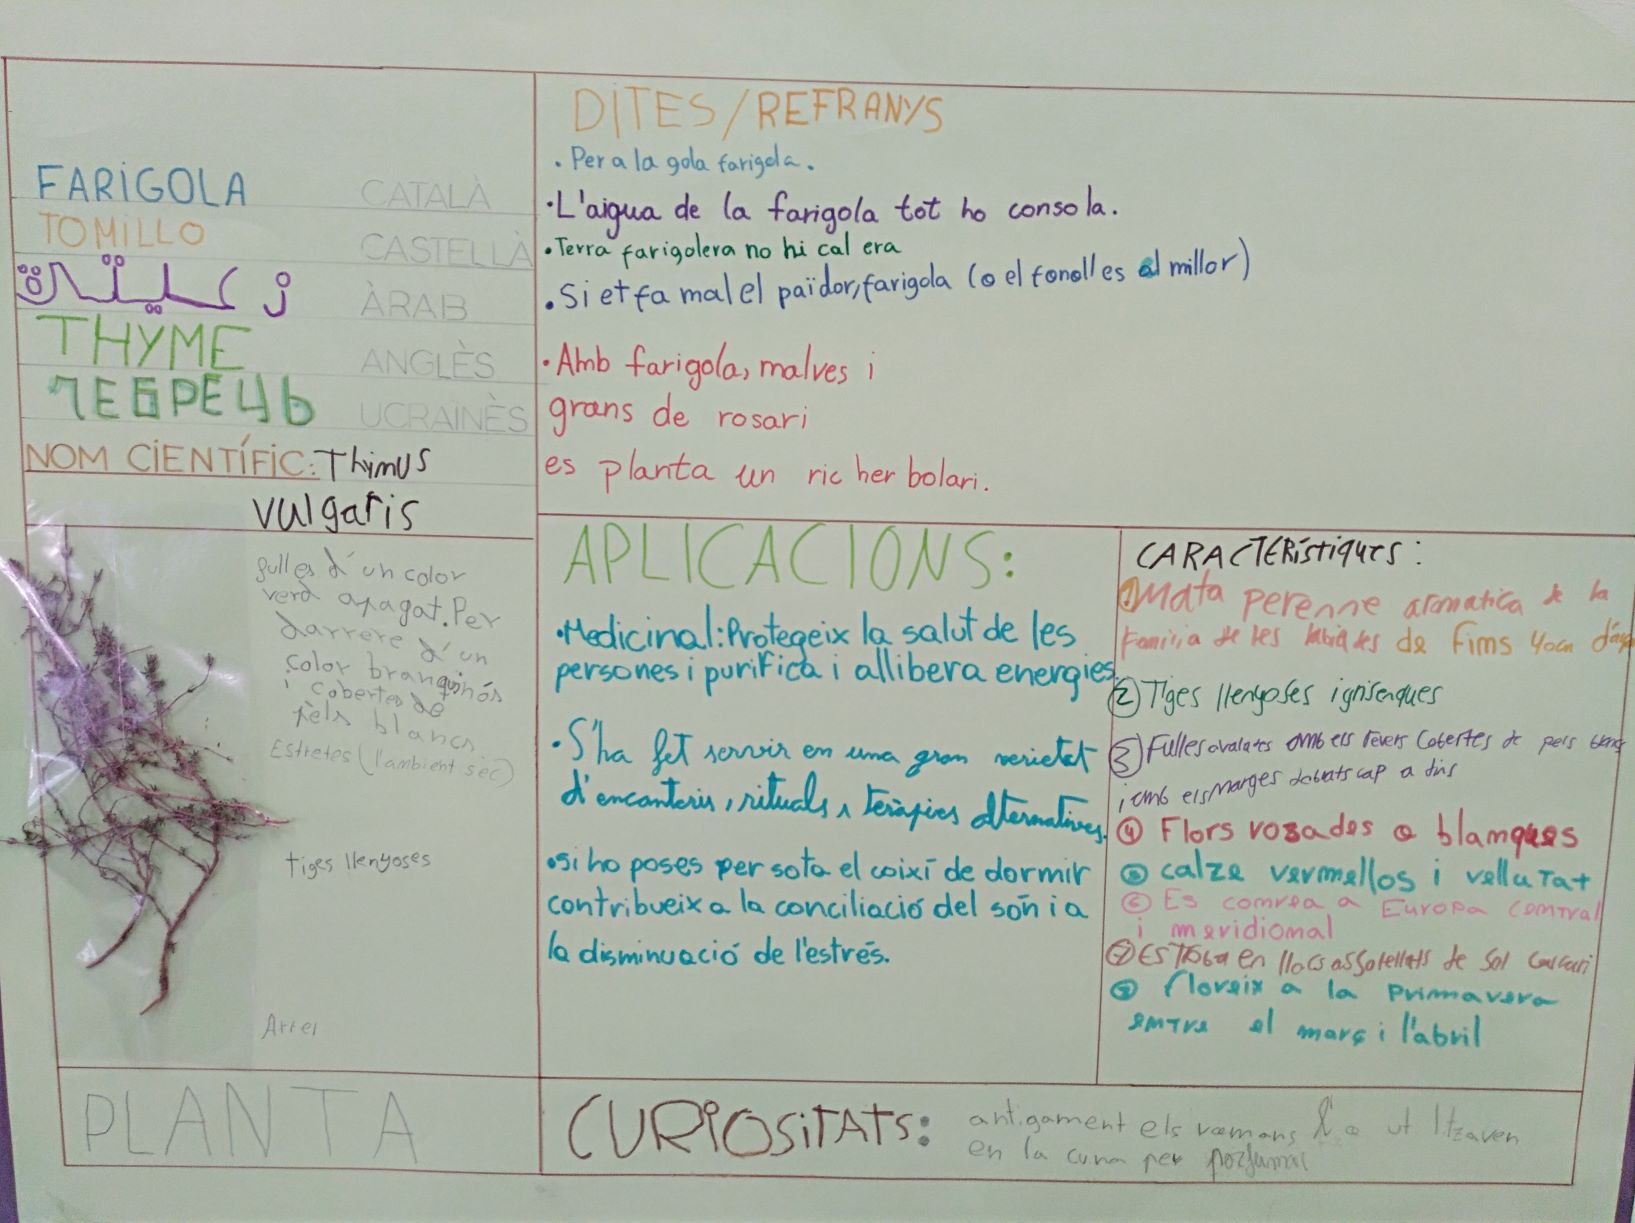 FARIGOLA CATALÀ
TOMILLO CASTELLÀ
ÀRAB
THYME ANGLÈS
ЧЕБРЕЦЬ UCRAÏNÈS
NOM CIENTÍFIC: Thimus
vulgaris
fulles d'un color
verd apagat. Per
darrere d'un
color branquinós
i cobertes de
pèls blancs
Estretes (l'ambient sèc)
tiges llenyoses
Arrel
PLANTA
DITES/REFRANYS
• Per a la gola farigola.
• L'aigua de la farigola tot ho consola.
• Terra farigolera no hi cal era
• Si et fa mal el païdor, farigola (o el fonoll es el millor)
• Amb farigola, malves i
grans de rosari
es planta un ric herbolari.
APLICACIONS:
• Medicinal: Protegeix la salut de les
persones i purifica i allibera energies.
• S'ha fet servir en una gran varietat
d'encanteris, rituals, teràpies alternatives.
• si ho poses per sota el coixí de dormir
contribueix a la conciliació del són i a
la disminuació de l'estrés.
CARACTERístiques:
① Mata perenne aromatica de la
familia de les labiades de fins 40cm
② Tiges llenyoses i grisenques
③ Fulles ovalates amb els revers cobertes de pels blancs
i amb els marges doblats cap a dins
④ Flors rosades o blanques
⑤ calze vermellos i vellutat
⑥ Es conrea a Europa central
i meridional
⑦ Es troba en llocs assolellats de sol calcari
⑧ floreix a la primavera
entre el març i l'abril
CURIOSITATS: antigament els romans utilitzaven
en la cuna per porfumar